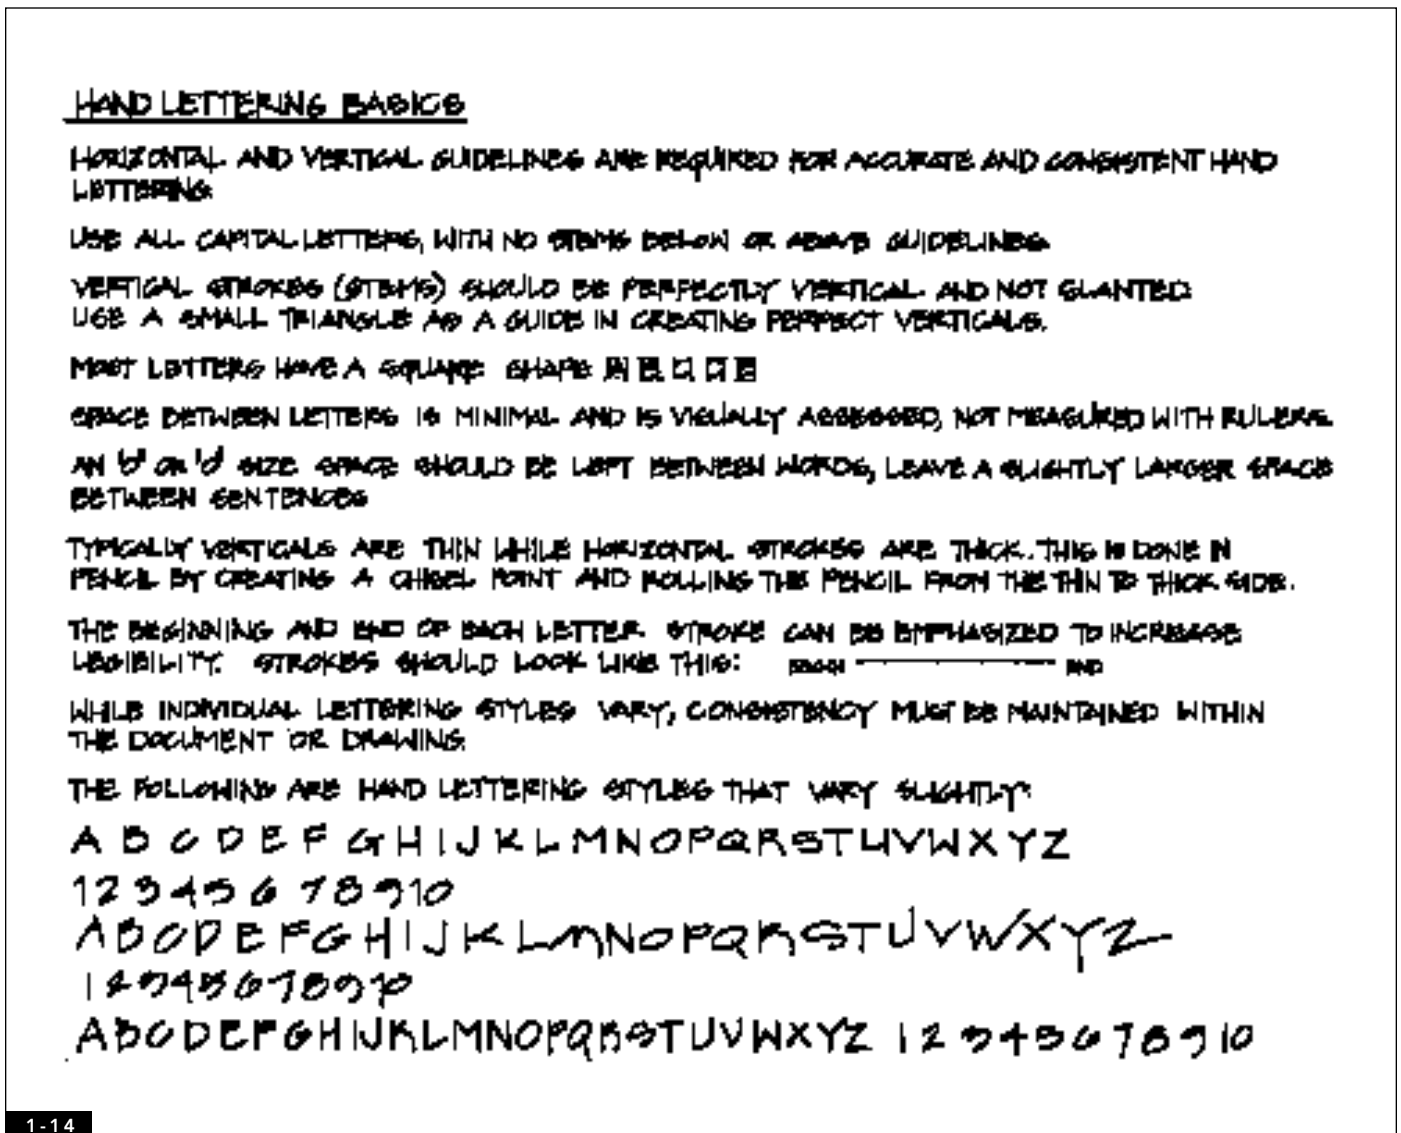 HAND LETTERING BASICS
HORIZONTAL AND VERTICAL GUIDELINES ARE REQUIRED FOR ACCURATE AND CONSISTENT HAND
LETTERING.
USE ALL CAPITAL LETTERS, WITH NO STEMS BELOW OR ABOVE GUIDELINES.
VERTICAL STROKES (STEMS) SHOULD BE PERFECTLY VERTICAL AND NOT SLANTED.
USE A SMALL TRIANGLE AS A GUIDE IN CREATING PERFECT VERTICALS.
MOST LETTERS HAVE A SQUARE SHAPE
SPACE BETWEEN LETTERS IS MINIMAL AND IS VISUALLY ASSESSED, NOT MEASURED WITH RULERS.
AN 'O' OR 'O' SIZE SPACE SHOULD BE LEFT BETWEEN WORDS, LEAVE A SLIGHTLY LARGER SPACE
BETWEEN SENTENCES
TYPICALLY VERTICALS ARE THIN WHILE HORIZONTAL STROKES ARE THICK. THIS IS DONE IN
PENCIL BY CREATING A CHISEL POINT AND ROLLING THE PENCIL FROM THE THIN TO THICK SIDE.
THE BEGINNING AND END OF EACH LETTER STROKE CAN BE EMPHASIZED TO INCREASE
LEGIBILITY. STROKES SHOULD LOOK LIKE THIS: BEGIN END
WHILE INDIVIDUAL LETTERING STYLES VARY, CONSISTENCY MUST BE MAINTAINED WITHIN
THE DOCUMENT OR DRAWING.
THE FOLLOWING ARE HAND LETTERING STYLES THAT VARY SLIGHTLY:
A B C D E F G H I J K L M N O P Q R S T U V W X Y Z
1 2 3 4 5 6 7 8 9 10
A B C D E F G H I J K L M N O P Q R S T U V W X Y Z
1 2 3 4 5 6 7 8 9 10
A B C D E F G H I J K L M N O P Q R S T U V W X Y Z 1 2 3 4 5 6 7 8 9 10
1-14